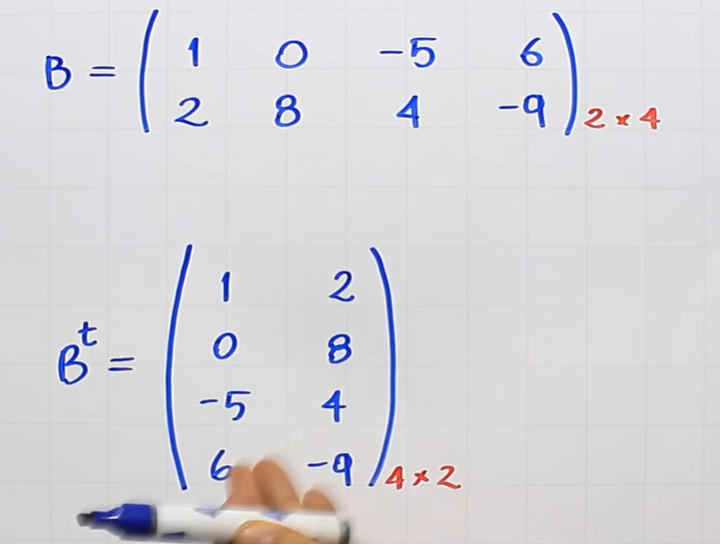 B = ( 1 0 -5 6
2 8 4 -9 ) 2 × 4
Bᵗ = ( 1 2
0 8
-5 4
6 -9 ) 4 × 2